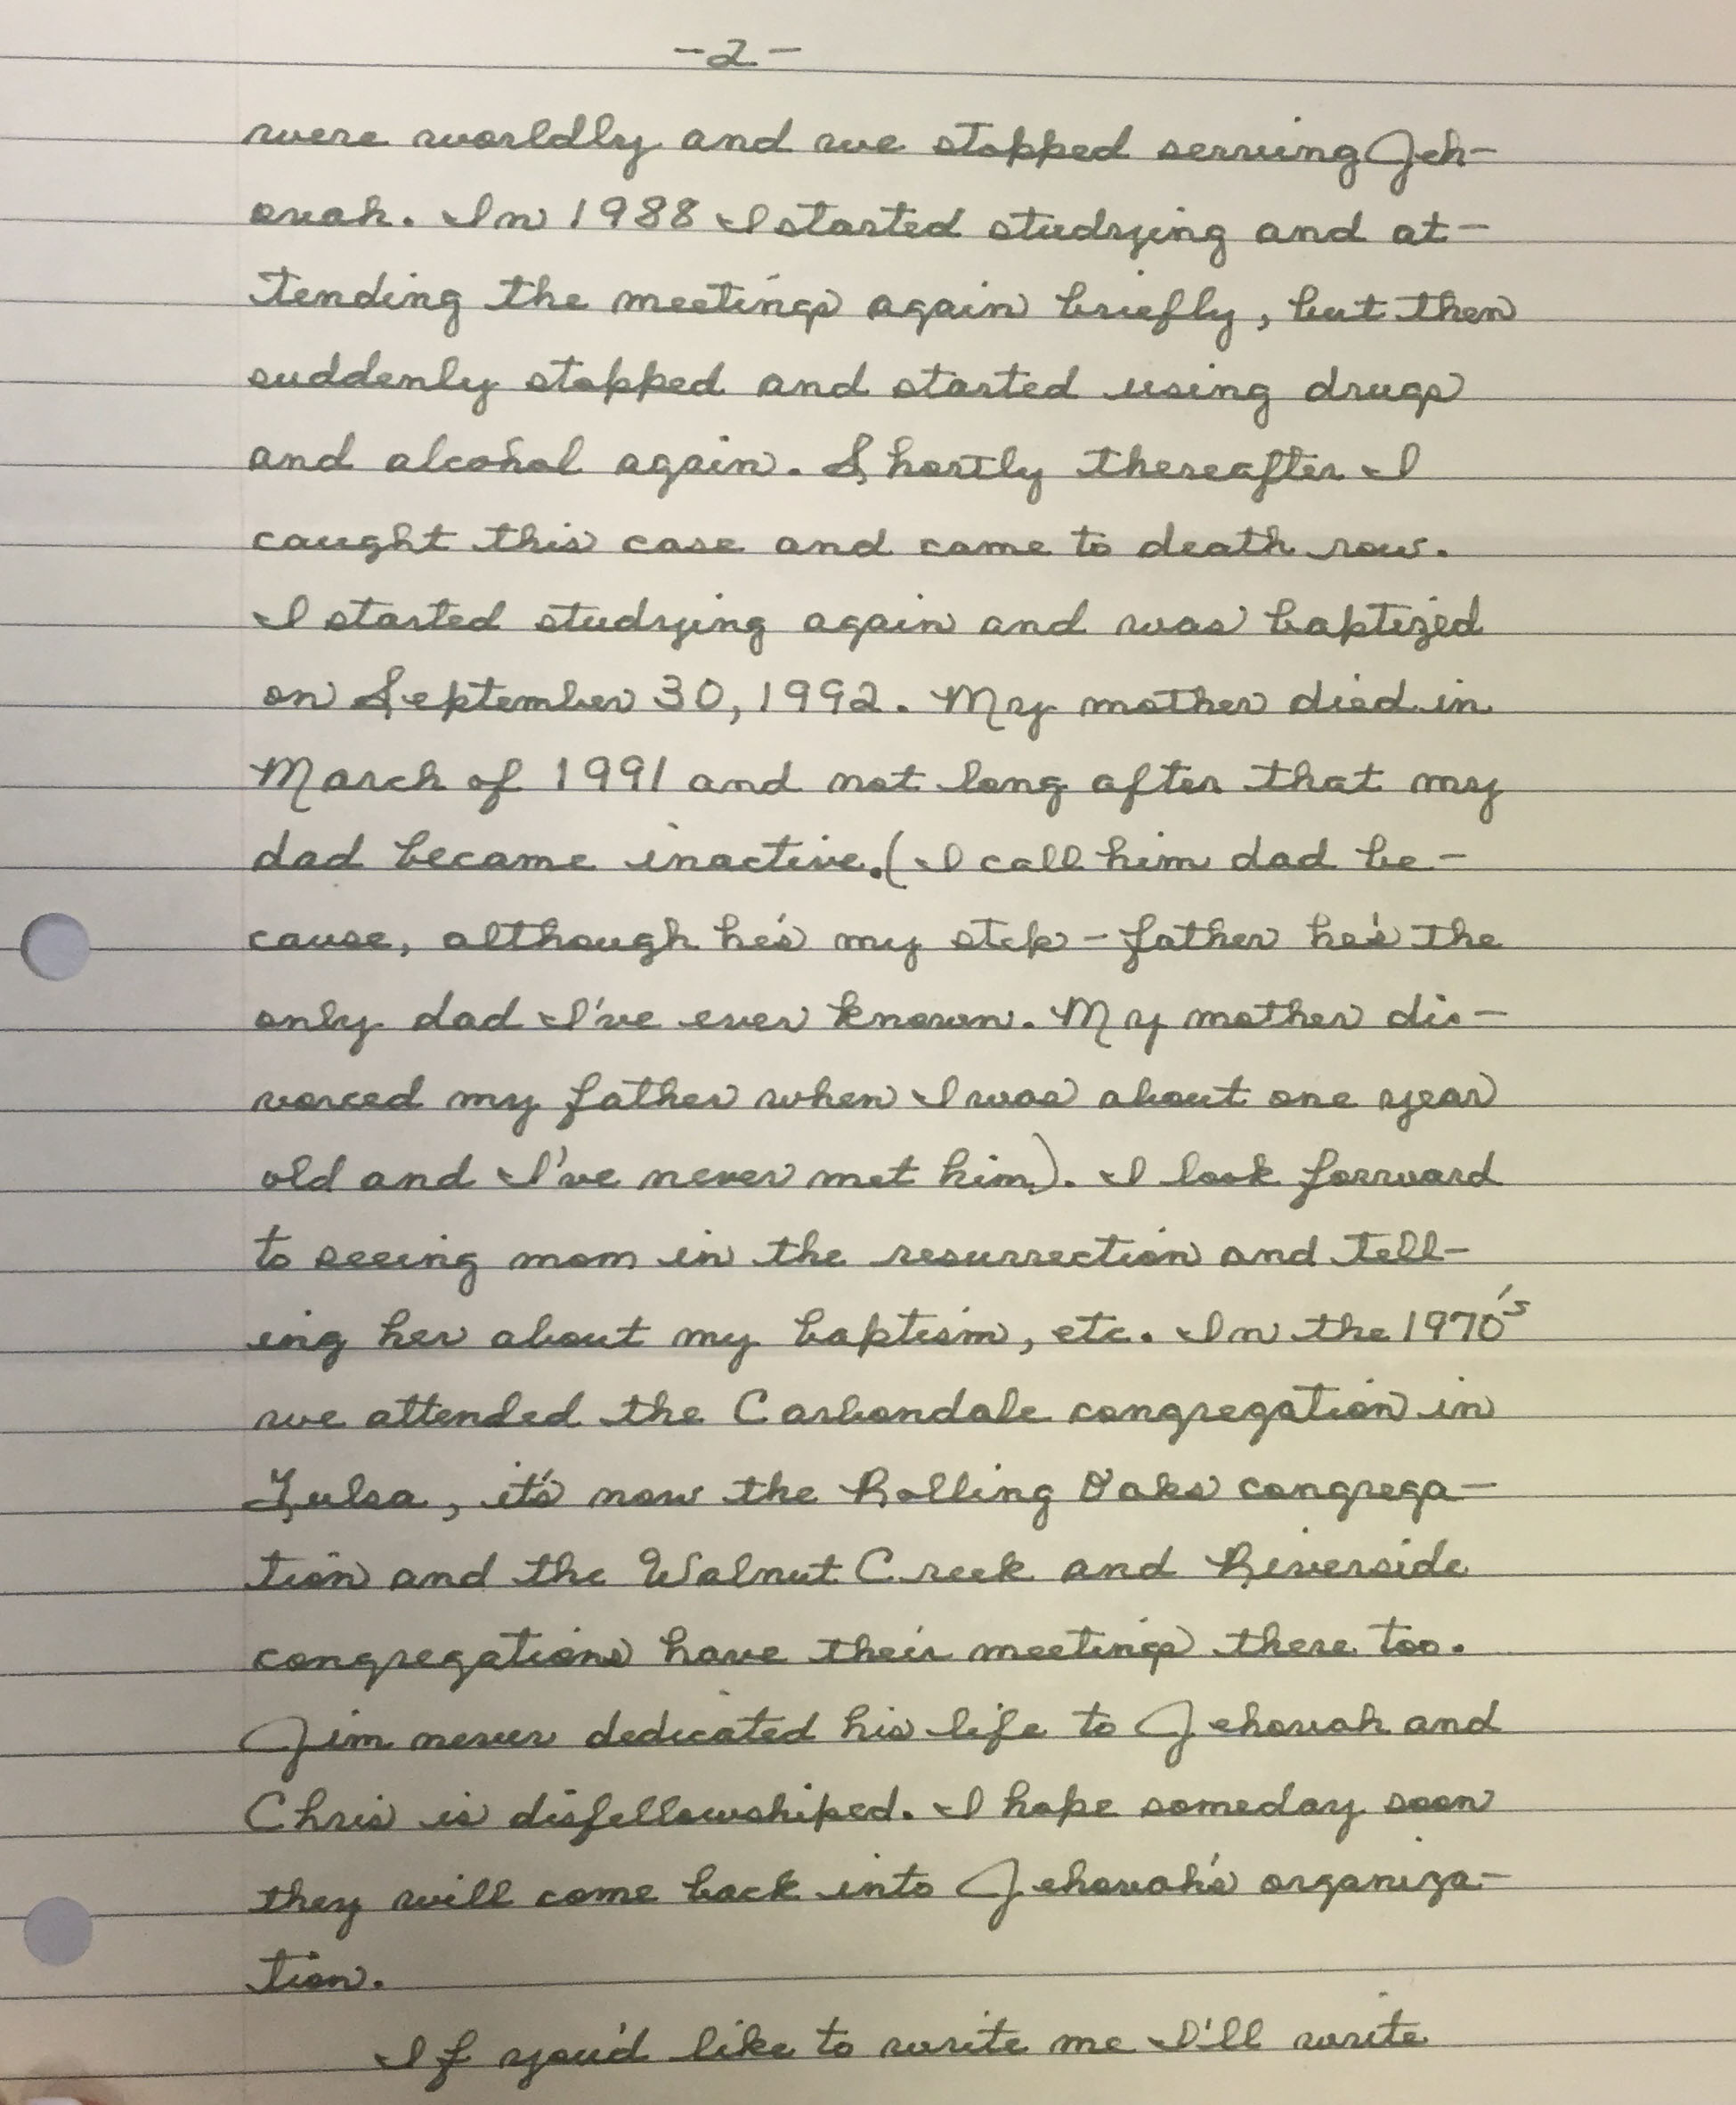 -2-
were worldly and we stopped serving Jeh-
ovah. In 1988 I started studying and at-
tending the meetings again briefly, but then
suddenly stopped and started using drugs
and alcohol again. Shortly thereafter I
caught this case and came to death row.
I started studying again and was baptized
on September 30, 1992. My mother died in
March of 1991 and not long after that my
dad became inactive. (I call him dad be-
cause, although he's my step-father he's the
only dad I've ever known. My mother div-
vorced my father when I was about one year
old and I've never met him). I look forward
to seeing mom in the resurrection and tell-
ing her about my baptism, etc. In the 1970's
we attended the Carbondale congregation in
Tulsa, it's now the Rolling Oaks congrega-
tion and the Walnut Creek and Riverside
congregations have their meetings there too.
Jim never dedicated his life to Jehovah and
Chris is disfellowshiped. I hope someday soon
they will come back into Jehovah's organiza-
tion.
If you'd like to write me I'll write